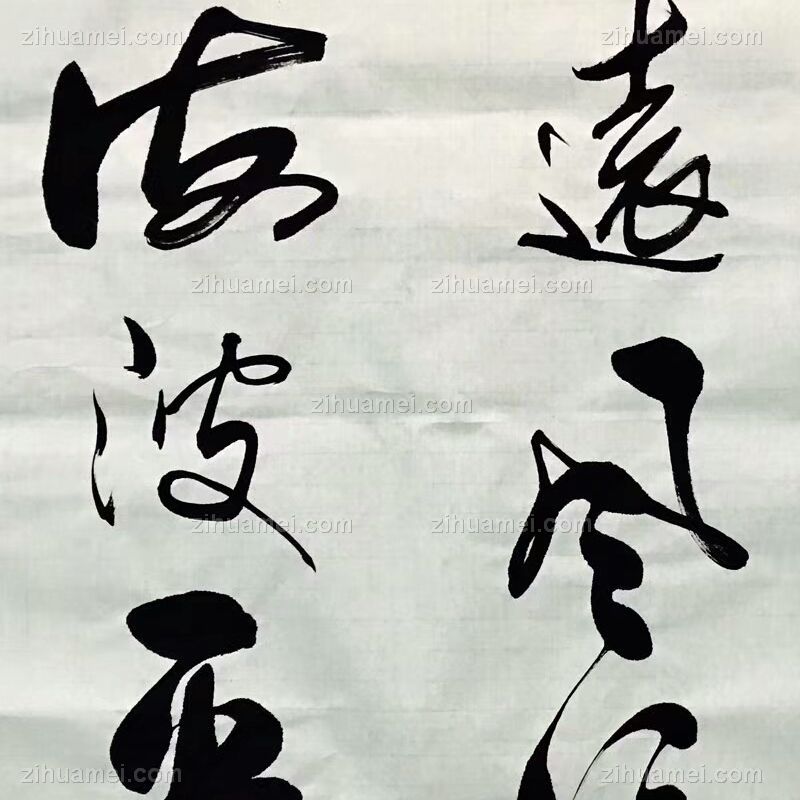 遠風
海波
zihuamei.com
zihuamei.com
zihuamei.com
zihuamei.com
zihuamei.com
zihuamei.com
zihuamei.com
zihuamei.com
zihuamei.com